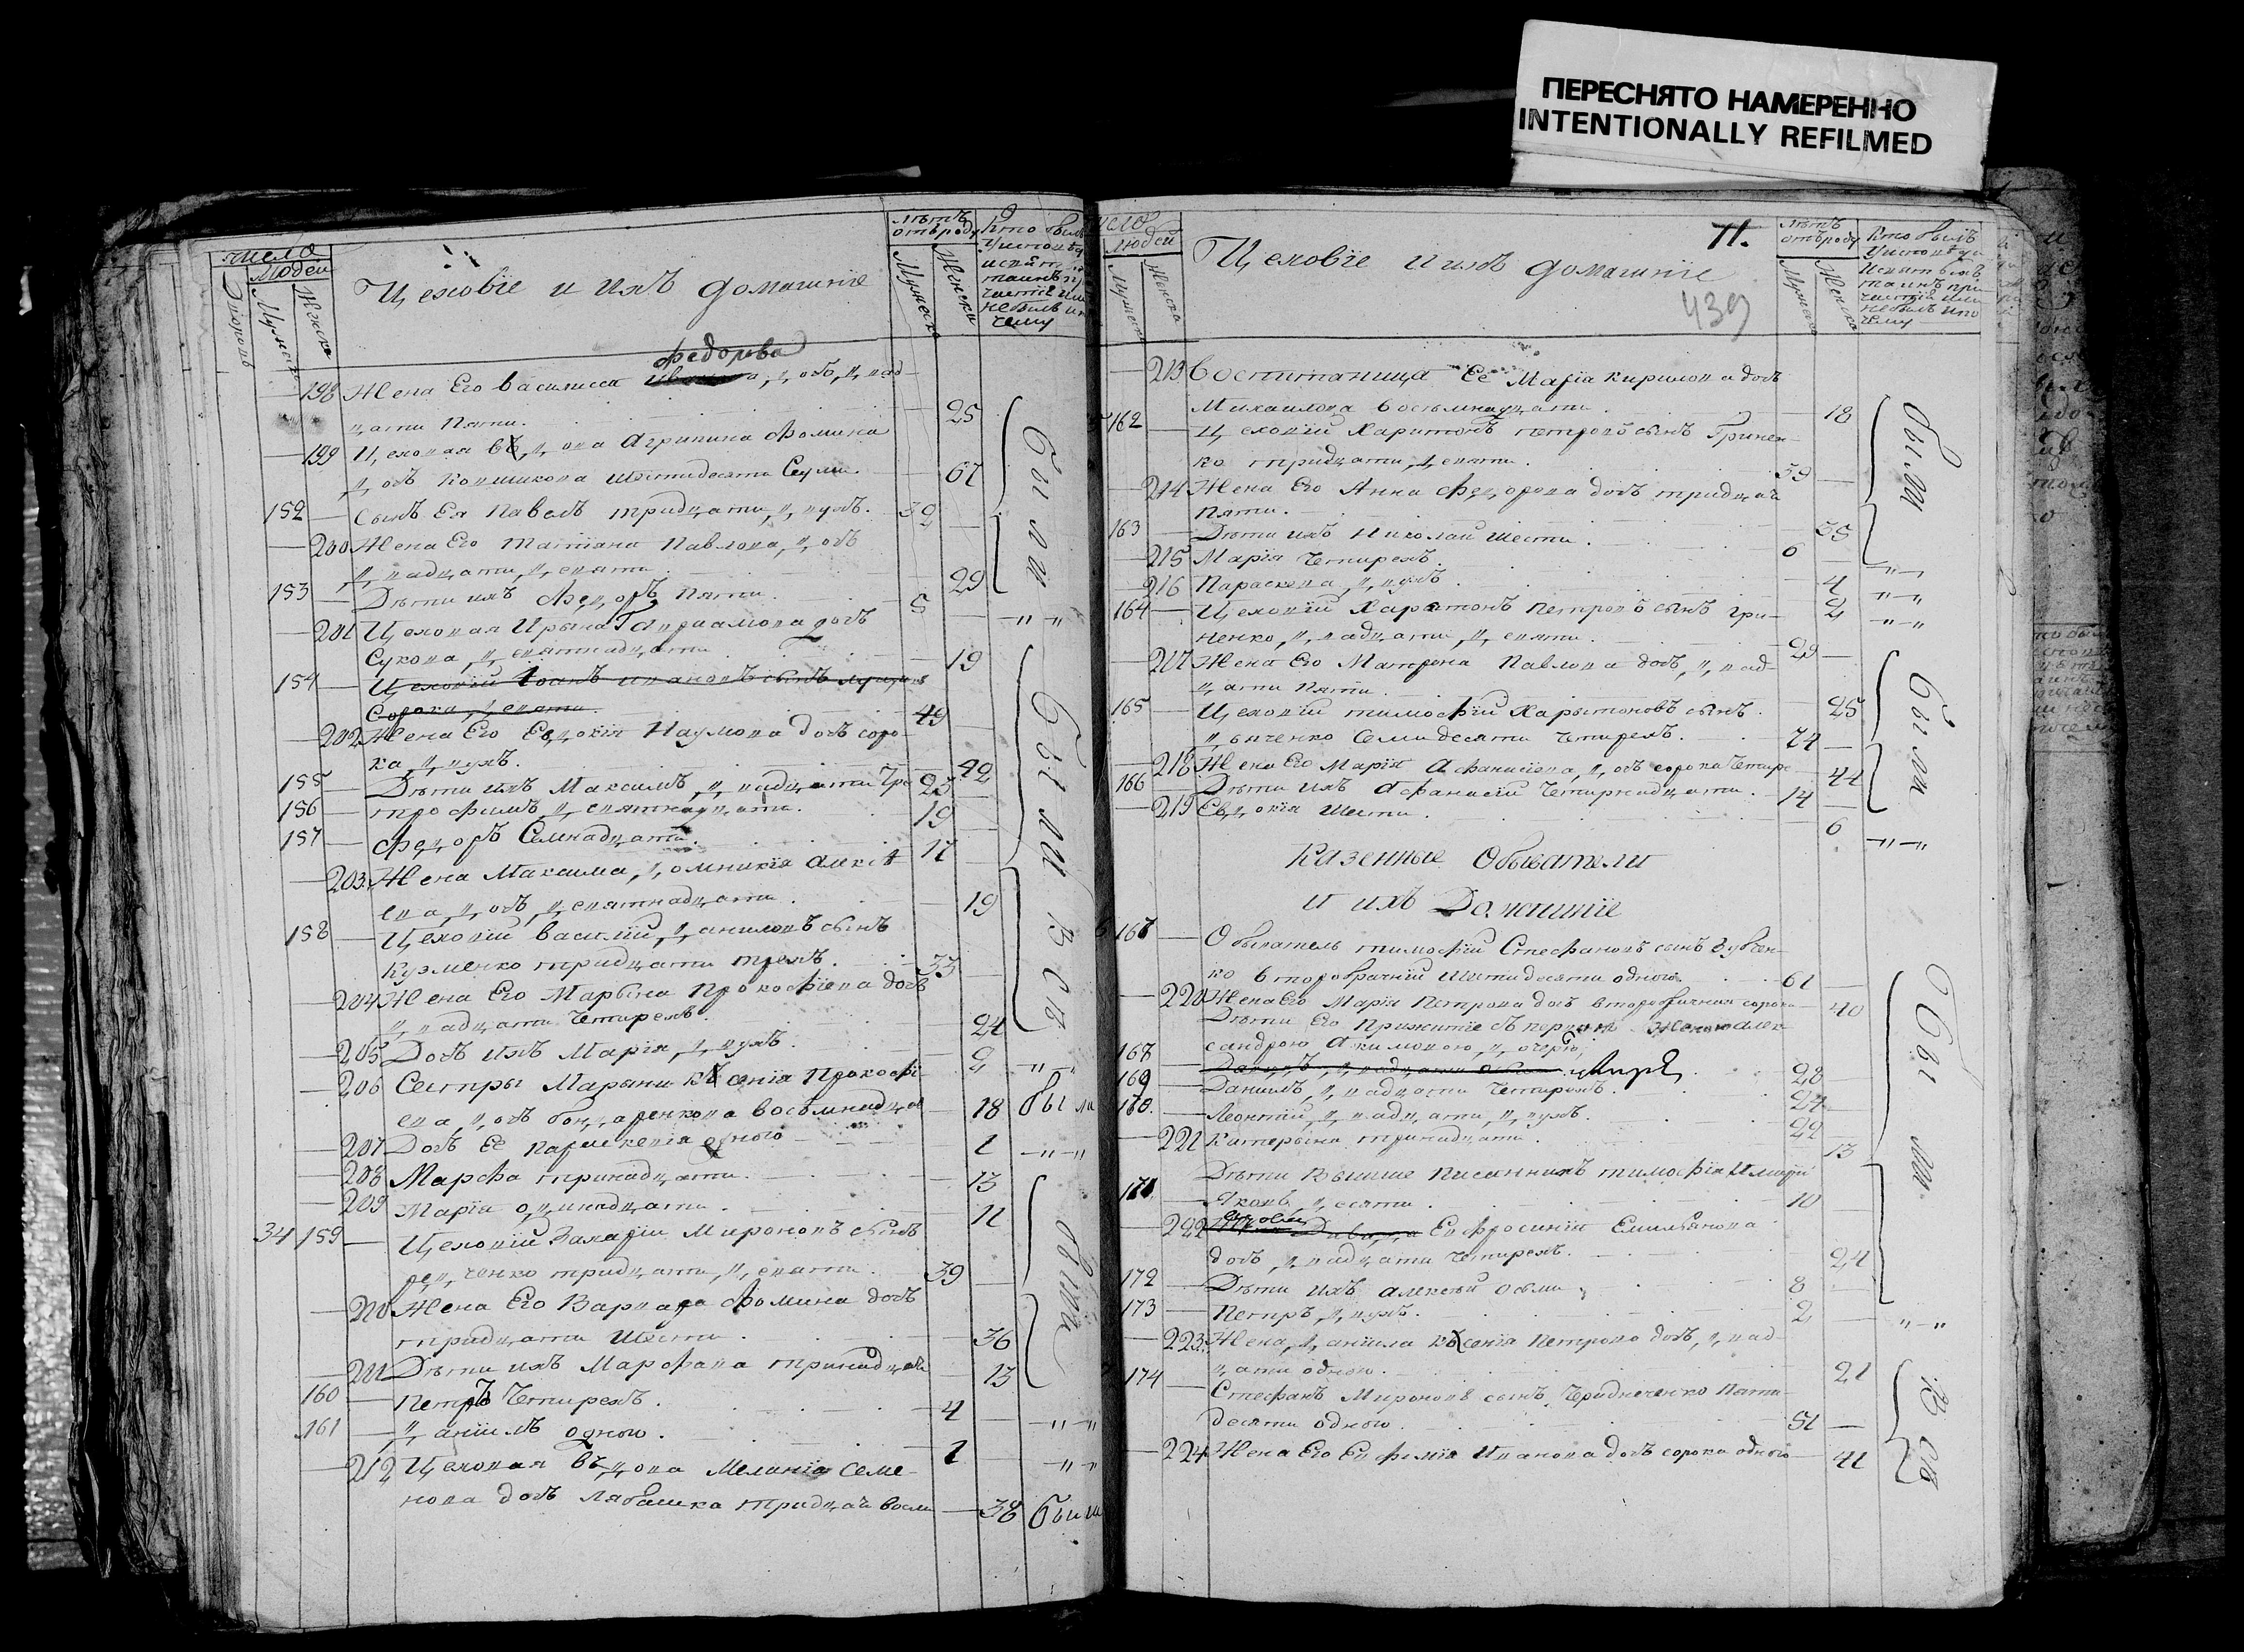 ПЕРЕСНЯТО НАМЕРЕННО
INTENTIONALLY REFILMED
число
людей
Мужеска
Женска
Цеховіе и ихъ домашніе
лѣтъ отъ роду
Мужеска
Женска
Федорова
198 Жена Его Василиса
цати Пяти. 25
199 Цеховая вдова Агрипина Фомина
шестидесяти Семи. 67
152 Сынъ Ея Павелъ тридцати двухъ. 32
200 Жена Его Татіана Павлова дочь
двадцати девяти 29
были
153 Дѣти ихъ Федоръ Пяти. 5
201 Цеховая Ирына дочь
Сукова девятнадцати 19
154 Цеховій Іоанъ Ивановъ сынъ
Сорока девяти. 49
202 Жена Его Евдокія Наумова дочь соро-
ка двухъ. 42
155 Дѣти ихъ Максимъ двадцати Тре 23
156 трофимъ девятнадцати. 19
157 Федоръ Семнадцати. 17
203 Жена Максима Домникія Алексѣ
ева дочь девятнадцати. 19
были всѣ
158 Цеховій Василій Даниловъ сынъ
Кузменко тридцати трехъ. 33
204 Жена Его Марына Прокофіева дочь
двадцати Четирехъ. 24
205 Дочь ихъ Марія двухъ. 2
206 Сестры Марыни Ксенія Прокофі-
ева дочь бондаренкова восемнадца 18 были
207 Дочь Ее Параскевія одного 1
208 Марфа тринадцати. 13
209 Марія одинадцати 11
34 159 Цеховій Захарій Мироновъ сынъ
ченко тридцати девяти. 39
210 Жена Его Варвара Фомина дочь
тридцати Шести. 36
были
211 Дѣти ихъ Марфа тринадцати 13
160 Петръ Четирехъ. 4
161 Даніилъ одного. 1
212 Цеховая вдова Меланія Семе-
нова дочь Лябашка тридцати восми 38 были
число
людей
Мужеска
Женска
Цеховіе и ихъ домашніе
71.
439
лѣтъ отъ роду
Мужеска
Женска
213 Воспитаница Ее Марія Кирилова дочь
Михаилова восемнадцати. 18
162 Цеховій Харитонъ Петровъ сынъ Гринен-
ко тридцати девяти. 39
214 Жена Его Анна Федорова дочь тридцати
Пяти. 35
были
163 Дѣти ихъ Николай шести. 6
215 Марія Четирехъ. 4
216 Параскева двухъ. 2
164 Цеховій Харитонъ Петровъ сынъ Гри-
ненко двадцати девяти. 29
217 Жена Его Матрона Павлова дочь двад-
цати Пяти. 25
165 Цеховій тимофій Харытоновъ сынъ
Семидесяти Четирехъ. 74
были
218 Жена Его Марія Афанасіева дочь сорока Четире 44
166 Дѣти ихъ Афанасій Четирнадцати. 14
219 Евдокія Шести. 6
Казенные Обыватели
и ихъ Домашніе
167 Обыватель тимофій Стефановъ сынъ Зубчен-
ко второбрачній Шестидесяти одного. 61
220 Жена Его Марія Петрова дочь второбрачная сорока 40
Дѣти Его Прижитіе съ первою Женою Алек-
сандрою Акимовою дочерю,
168 28
169 Даніилъ двадцати Четирехъ. 24
170. Леонтій двадцати двухъ. 22
221 Катерына тринадцати. 13
были
Дѣти Вышше Писанныхъ тимофія и Маріи
171 Яковъ десяти. 10
222 Ефросинія Емиліянова
дочь двадцати Четирехъ. 24
172 Дѣти ихъ Алексѣй осьми 8
173 Петръ двухъ. 2
223 Жена Даніила Ксенія Петрова дочь двад-
цати одного. 21
174 Стефанъ Мироновъ сынъ Чередниченко Пяти-
десяти одного. 51
224 Жена Его Евфимія Иванова дочь сорока одного 41
всѣ